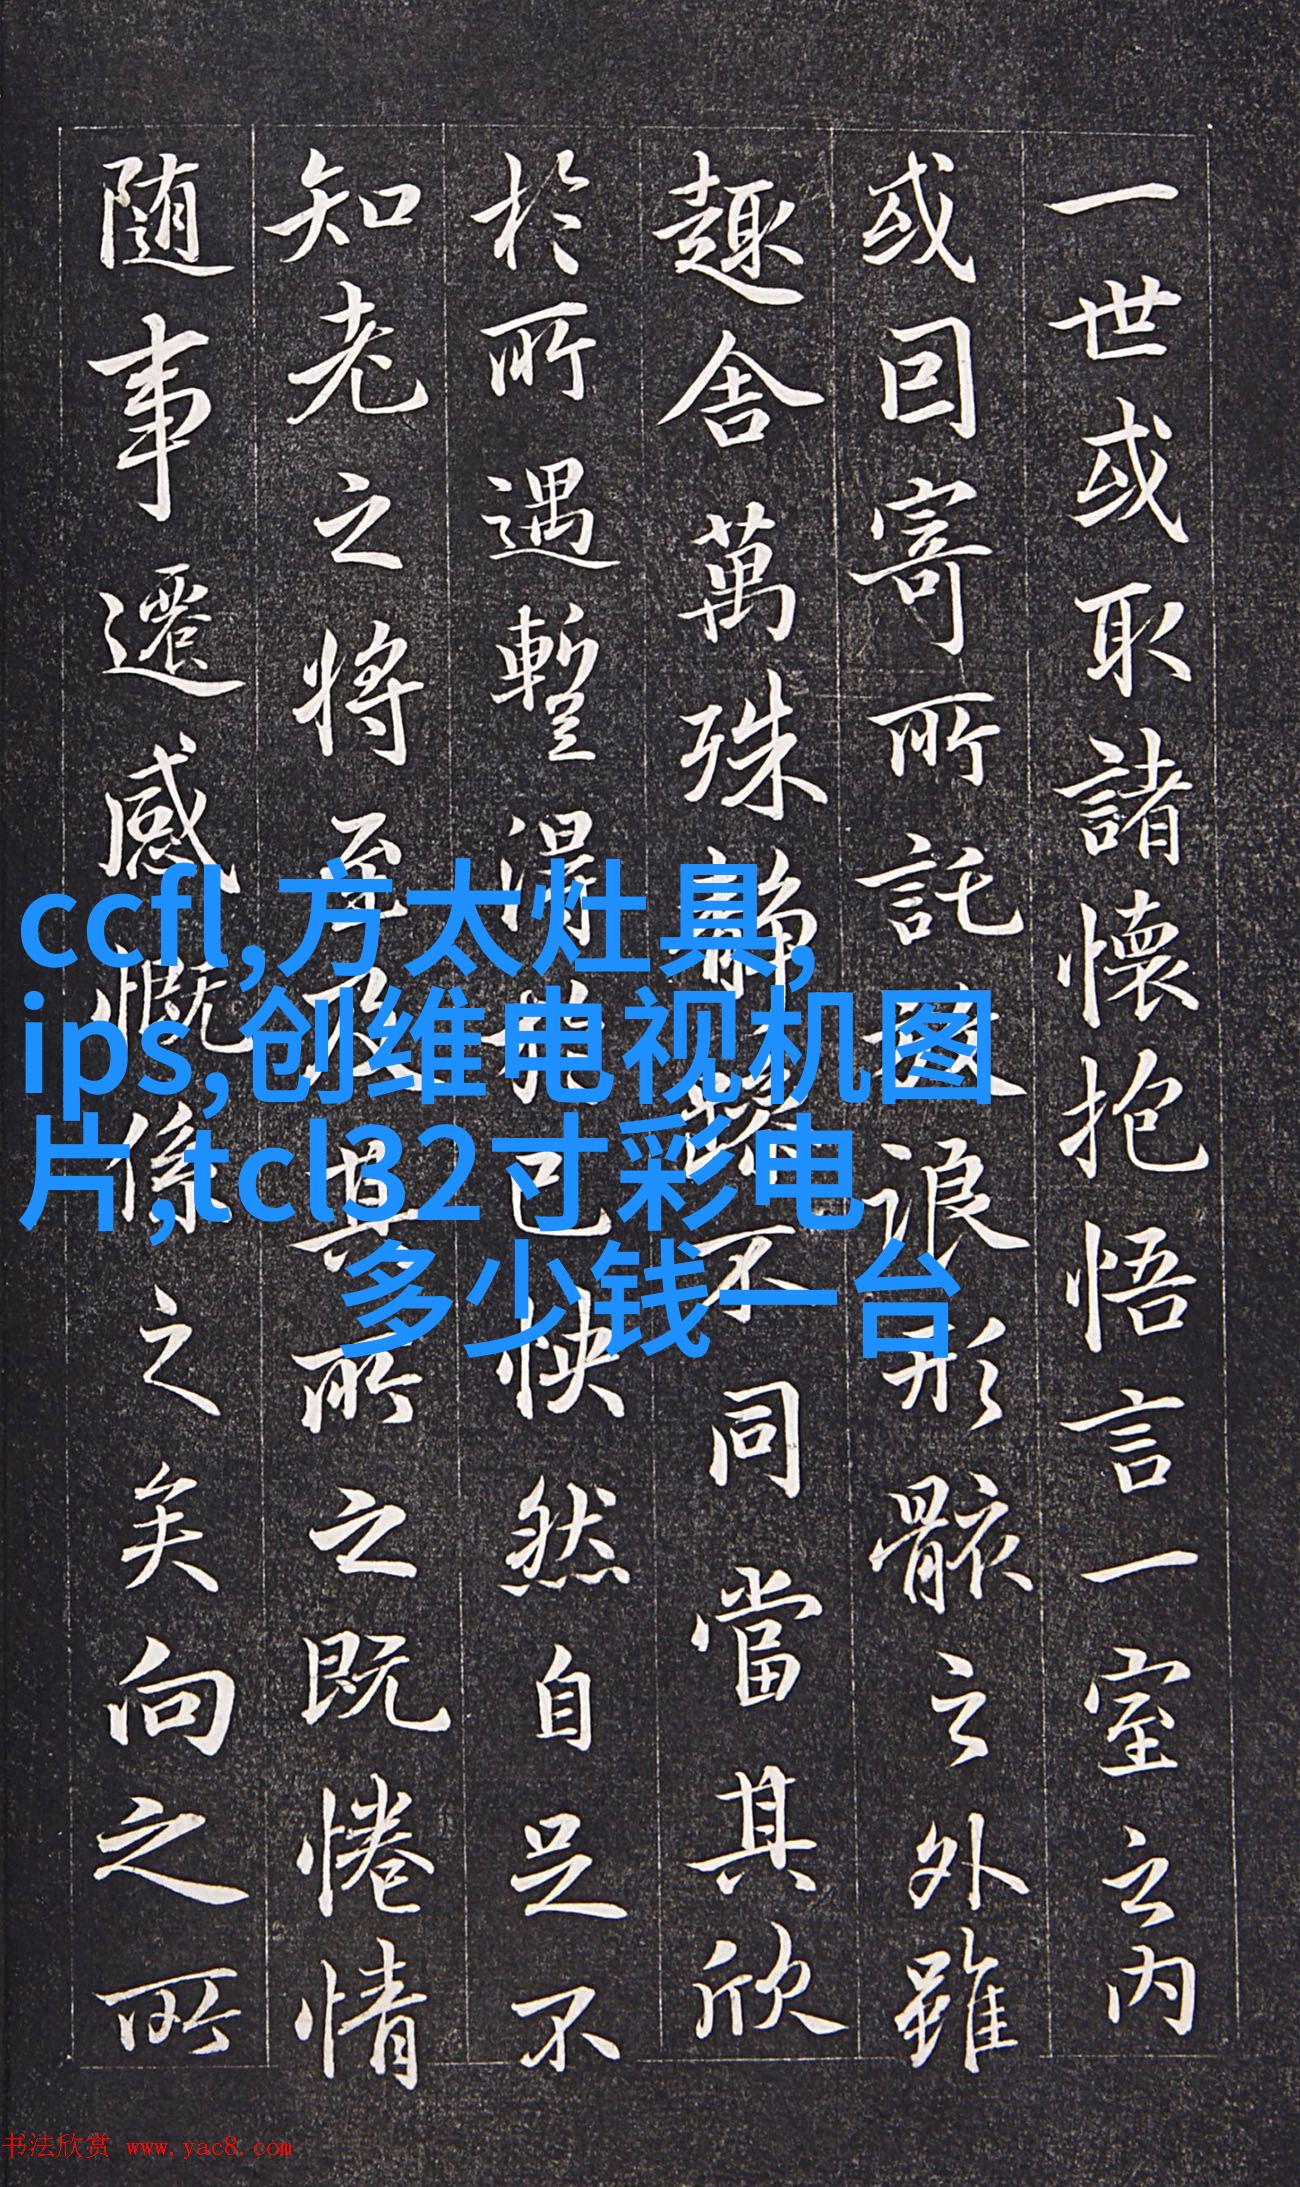 一世或取諸懷抱悟言一室之内
或囙寄所託放浪形骸之外雖
趣舍萬殊静躁不同當其欣
於所遇暫得於己快然自足不
知老之將至及其所之既惓情
随事遷感慨係之矣向之所
ccfl,方太灶具,
ips,创维电视机图
片,tcl32寸彩电
多少钱一台
书法欣赏 www.yac8.com